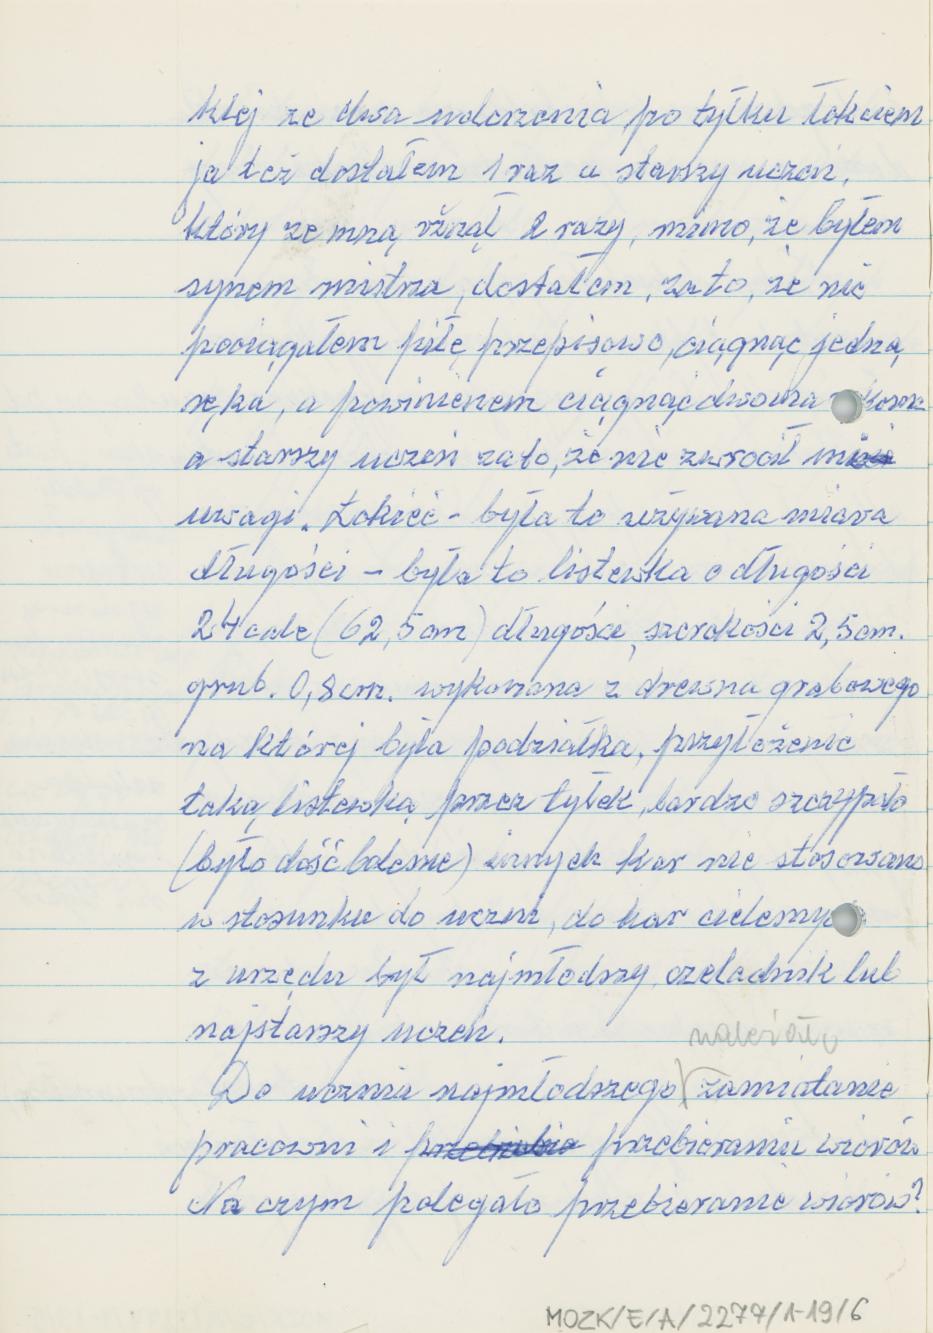 klej ze dwa uderzenia po tyłku łokciem
ja też dostałem 1 raz a starszy uczeń,
który ze mną rżnął 2 razy, mimo, że byłem
synem mistrza, dostałem, za to, że nie
pociągałem piłę przepisowo, ciągnąc jedną
ręką, a powinienem ciągnąć dwoma
a starszy uczeń za to, że nie zwrócił mi
uwagi. Łokieć - była to używana miara
długości - była to listewka o długości
24 cale (62,5 cm) długości, szerokości 2,5 cm.
grub. 0,8 cm. wykonana z drewna grabowego
na której była podziałka, przyłożenie
taką listewką przez tyłek, bardzo szczypało
(było dość bolesne) innych kar nie stosowano
w stosunku do uczni, do kar cielesnych
z urzędu był najmłodszy czeladnik lub
najstarszy uczeń.
należało
Do ucznia najmłodszego zamiatanie
pracowni i przebieraniu wiórów
Na czym polegało przebieranie wiórów?
MOZK/E/A/2277/1-19/6